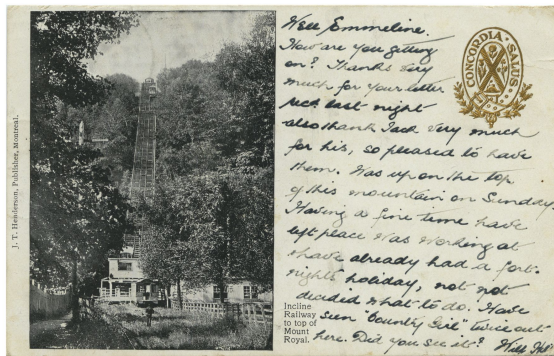 J. T. Henderson, Publisher, Montreal.
Incline
Railway
to top of
Mount
Royal.
CONCORDIA SALUS
Well Emmeline.
How are you getting
on? Thanks very
much for your letter
recd last night
also thank Jack very much
for his, so pleased to have
them. Was up on the top
of this mountain on Sunday.
Having a fine time have
left place was working at
& have already had a fort-
night's holiday, not
decided what to do. Have
seen "County Girl" twice out
here. Did you see it?